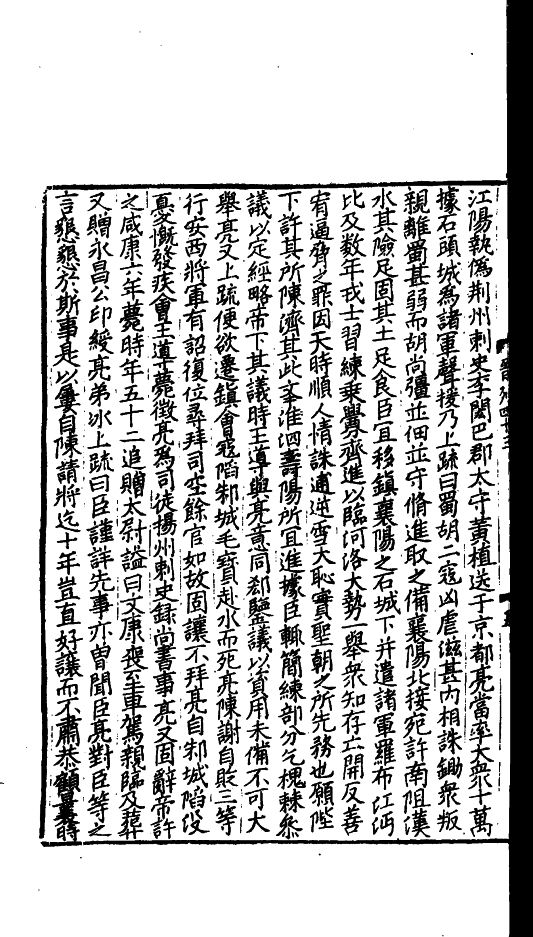 江陽執僞荆州刺史李閎巴郡太守黃植送于京都亮當率大衆十萬
據石頭城爲諸軍聲援乃上疏曰蜀胡二寇凶虐滋甚内相誅鋤衆叛
親離蜀甚弱而胡尚彊並佃並守脩進取之備襄陽北接宛許南阻漢
水其險足固其土足食臣宜移鎮襄陽之石城下并遣諸軍羅布江沔
比及数年戎士習練乗釁齊進以臨河洛大勢一舉衆知存亡開反善
宥逼脅之罪因天時順人情誅逋逆雪大恥實聖朝之所先務也願陛
下許其所陳濟其此舉淮泗壽陽所宜進據臣輒簡練部分乞槐棘叅
議以定經略帝下其議時王導與亮意同郄鑒議以資用未備不可大
舉亮又上疏便欲遷鎮會寇陷邾城毛寶赴水而死亮陳謝自貶三等
行安西將軍有詔復位尋拜司空餘官如故固讓不拜亮自邾城陷没
憂慨發疾會王導薨徴亮爲司徒揚州刺史録尚書事亮又固辭帝許
之咸康六年薨時年五十二追贈太尉諡曰文康喪至車駕親臨及葬
又贈永昌公印綬亮弟冰上疏曰臣謹詳先事亦曽聞臣亮對臣等之
言懇懇於斯事是以屢自陳請將迄十年豈直好讓而不肅恭顧曩時